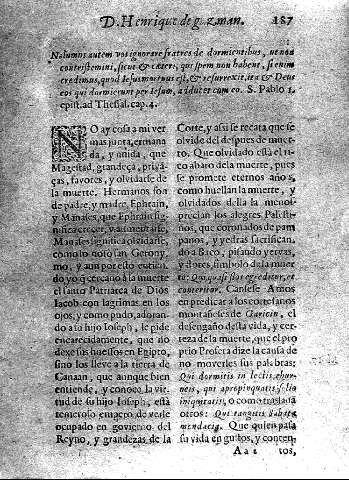 D. Henrique de guzman. 187
Nolumus autem vos ignorare fratres de dormientibus, ut non
contristemini, sicut & cæteri, qui spem non habent, si enim
credimus, quod Iesus mortuus est, & resurrexit, ita & Deus
eos qui dormierunt per Iesum, adducet cum eo. S. Pablo 1.
epist. ad Thesal. cap. 4.
NO ay cosa a mi ver
mas junta, ermana
da, y unida, que
Magestad, grandeça, priva
ças, favores, y olvidarse de
la muerte. Hermanos son
de padre, y madre, Ephrain,
y Manases, que Ephrain sig
nifica crecer, y aumentarse,
Manases significa olvidarse,
como lo notò san Gerony
mo, y aun por esso enti
do yo q̃ cercano à la muerte
el santo Patriarca de Dios
Iacob con lagrimas en los
ojos, y como pudo, adoran
do a su hijo Ioseph, le pide
encarecidamente, que no
dexe sus huessos en Egipto,
sino los lleve a la tierra de
Canaan, que aunque bien
entiende, y conoce la vir
tud de su hijo Ioseph, està
temeroso empero de verle
ocupado en govierno del
Reyno, y grandezas de la
Corte, y assi se recata que se
olvide del despues de muer
to. Que olvidado està el ri
co abaro de la muerte, pues
se promete eternos años,
como huellan la muerte, y
olvidados della la menos
precian los alegres Palesti
nos, que coronados de pam
panos, y yedras sacrifican
do a Baco, pisando yervas,
y flores, simbolo de la muer
te: Quasi flos egreditur, et
conteritur. Cansese Amos
en predicar a los cortesanos
montañeses de Garicin, el
desengaño desta vida, y cer
teza de la muerte, que el pro
prio Profeta dize la causa de
no moverles sus palabras:
Qui dormitis in lectis ebur
neis, qui apropinquatis solio
iniquitatis, o como traslada
otros: Qui tangitis sabata
mendacia. Que quien passa
su vida en gustos, y conten-
Aa 2 tos,